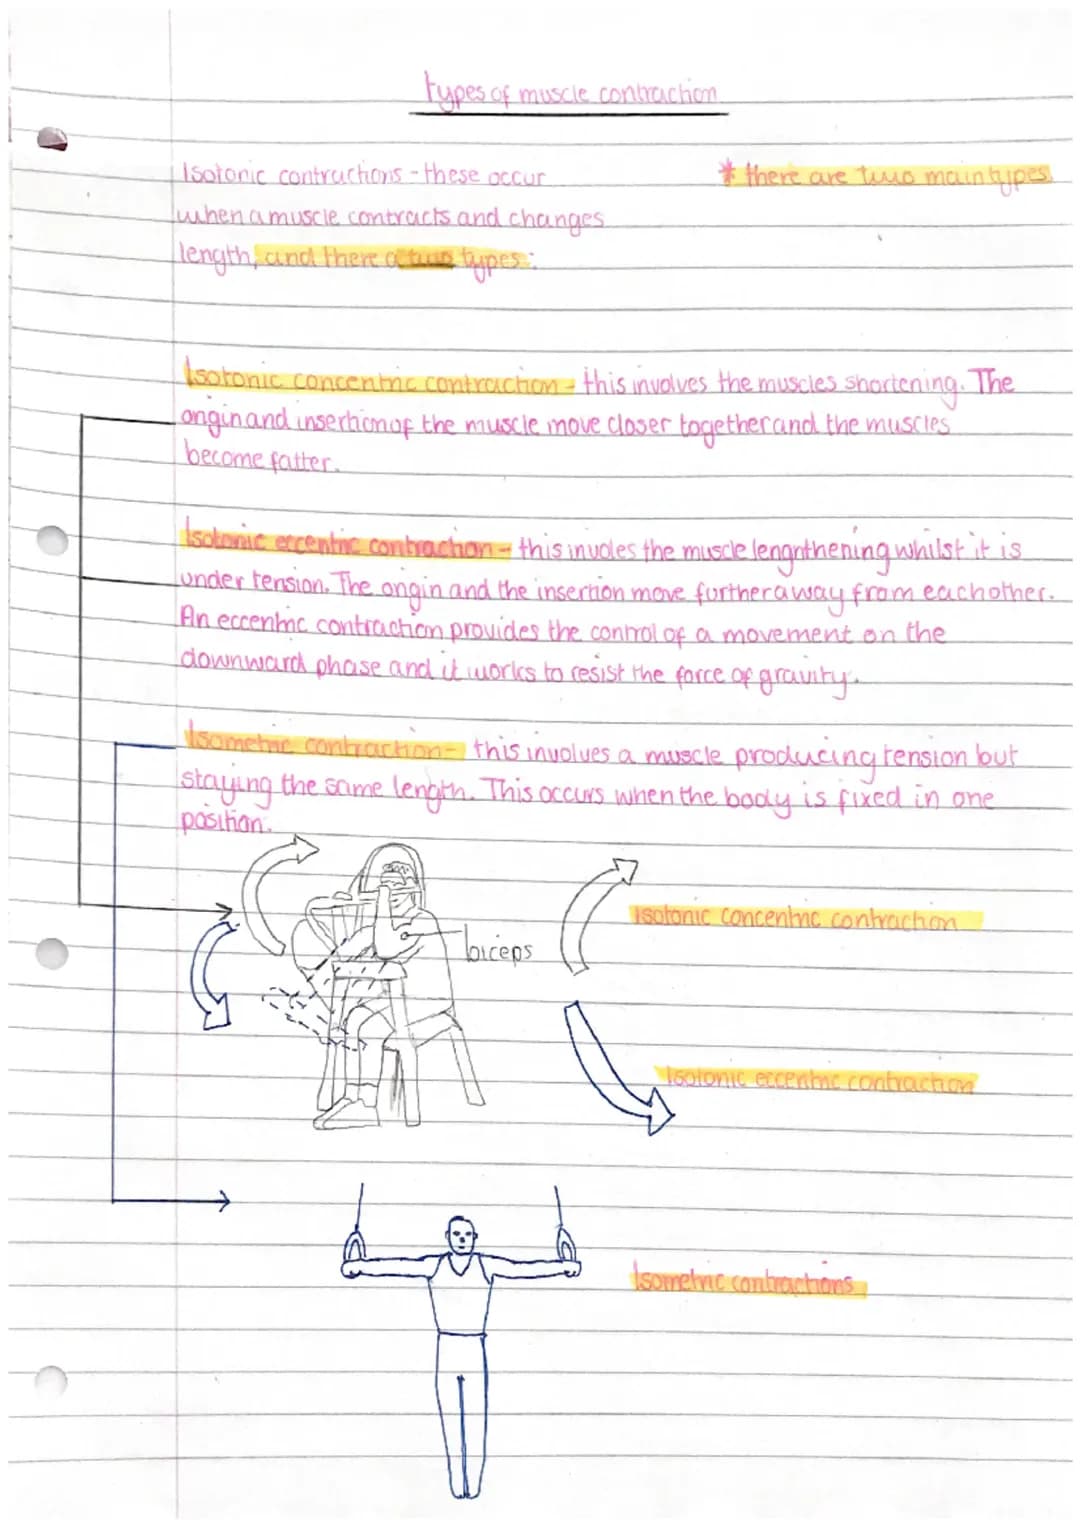 types of muscle contraction
Isotonic contractions - these occur
* there are two main types.
when a muscle contracts and changes
length, and there a two types:
Isotonic concentric contraction - this involves the muscles shortening. The
origin and insertion of the muscle move closer together and the muscles
become fatter.
Isotonic eccentric contraction - this involes the muscle lengnthening whilst it is
under tension. The origin and the insertion move further away from each other.
An eccentric contraction provides the control of a movement on the
downward phase and it works to resist the force of gravity.
Isometric contraction - this involves a muscle producing tension but
staying the same length. This occurs when the body is fixed in one
position.
Isotonic concentric contraction
biceps
Isotonic eccentric contraction
Isometric contractions